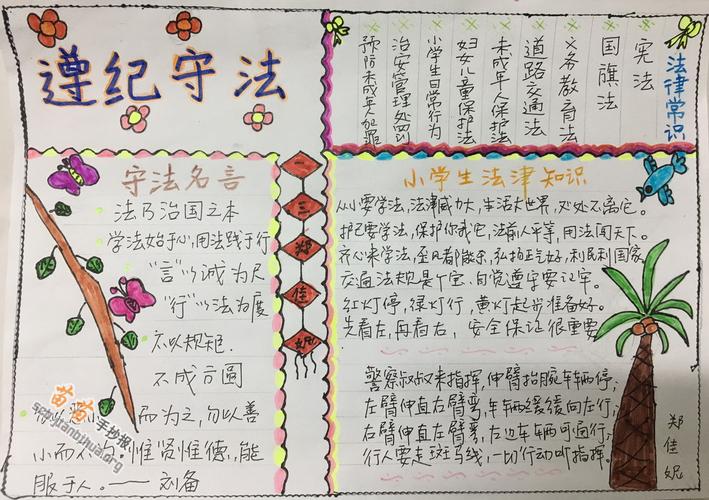 遵纪守法
法律常识
宪法
国旗法
义务教育法
道路交通法
未成年人保护法
妇女儿童保护法
小学生日常行为
治安管理处罚
预防未成年人犯罪
守法名言
法乃治国之本
学法始于心,用法践于行
“言”以诚为尺
“行”以法为度
不以规矩.
不成方圆
而为之,勿以善
小而不
惟贤惟德,能
服于人。——刘备
一三郑佳妮
小学生法津知识
从小要学法,法津威力大,生活大世界,处处不离它。
护己要学法,保护你我它,法前人平等,用法闯天下。
齐心来学法,至凡都敢余,弘扬正气好,利民利国家
交通法规是个宝.自觉遵守要记牢。
红灯停,绿灯行,黄灯起步准备好。
先看左,再看右,安全保证很重要
警察叔叔来指挥,伸臂抬腕车辆停;
左臂伸直右臂弯,车辆缓缓向左行;
右臂伸直左臂弯,右边车辆可通行;
行人要走斑马线,一切行动听指挥。
郑佳妮
苗爸手抄报